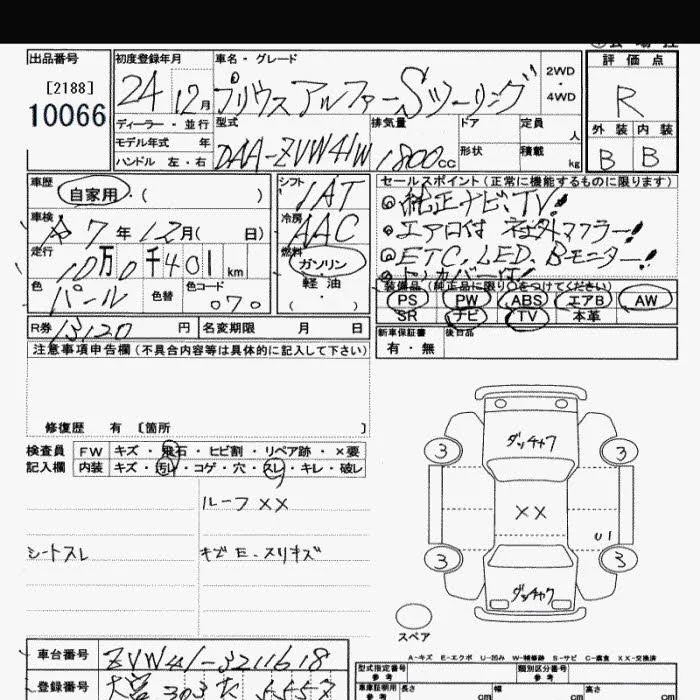 出品番号
[2188]
10066
初度登録年月
24 12月
車名・グレード
プリウスアルファーSツーリング
2WD
4WD
評価点
R
外装 内装
B B
ディーラー・並行
モデル年式 年
ハンドル 左・右
型式
DAA-ZVW41W
排気量
1800cc
ドア
形状
定員
人
積載
kg
車歴
自家用・( )
車検
令7年12月( 日)
走行
10万0千401km
色
パール
色替
色コード
070
シフト
IAT
冷房
AAC
燃料
ガソリン
軽油
( )
セールスポイント(正常に機能するものに限ります)
純正ナビ、TV!
エアロ付 社外マフラー!
ETC, LED, Bモニター!
トノカバー付!
装備品(純正品に限り○をつけてください)
PS PW ABS エアB AW
SR ナビ TV 本革
R券 13120 円
名変期限 月 日
新車保証書
有・無
後日品
注意事項申告欄(不具合内容等は具体的に記入して下さい)
修復歴 有 〔箇所 〕
検査員
記入欄
FW キズ・飛石・ヒビ割・リペア跡・×要
内装 キズ・汚れ・コゲ・穴・スレ・キレ・破レ
ルーフ××
シートスレ
キズE・メリキズ
ダッチャク
3 3
××
U1
3 3
ダッチャク
スペア
A-キズ E-エクボ U-凹み W-補修跡 S-サビ C-腐食 XX-交換済
車台番号
ZVW41-3211618
登録番号
303 5557
型式指定番号
参考
類別区分番号
参考
車庫証明用
参考
長さ
cm
幅
cm
高さ
cm